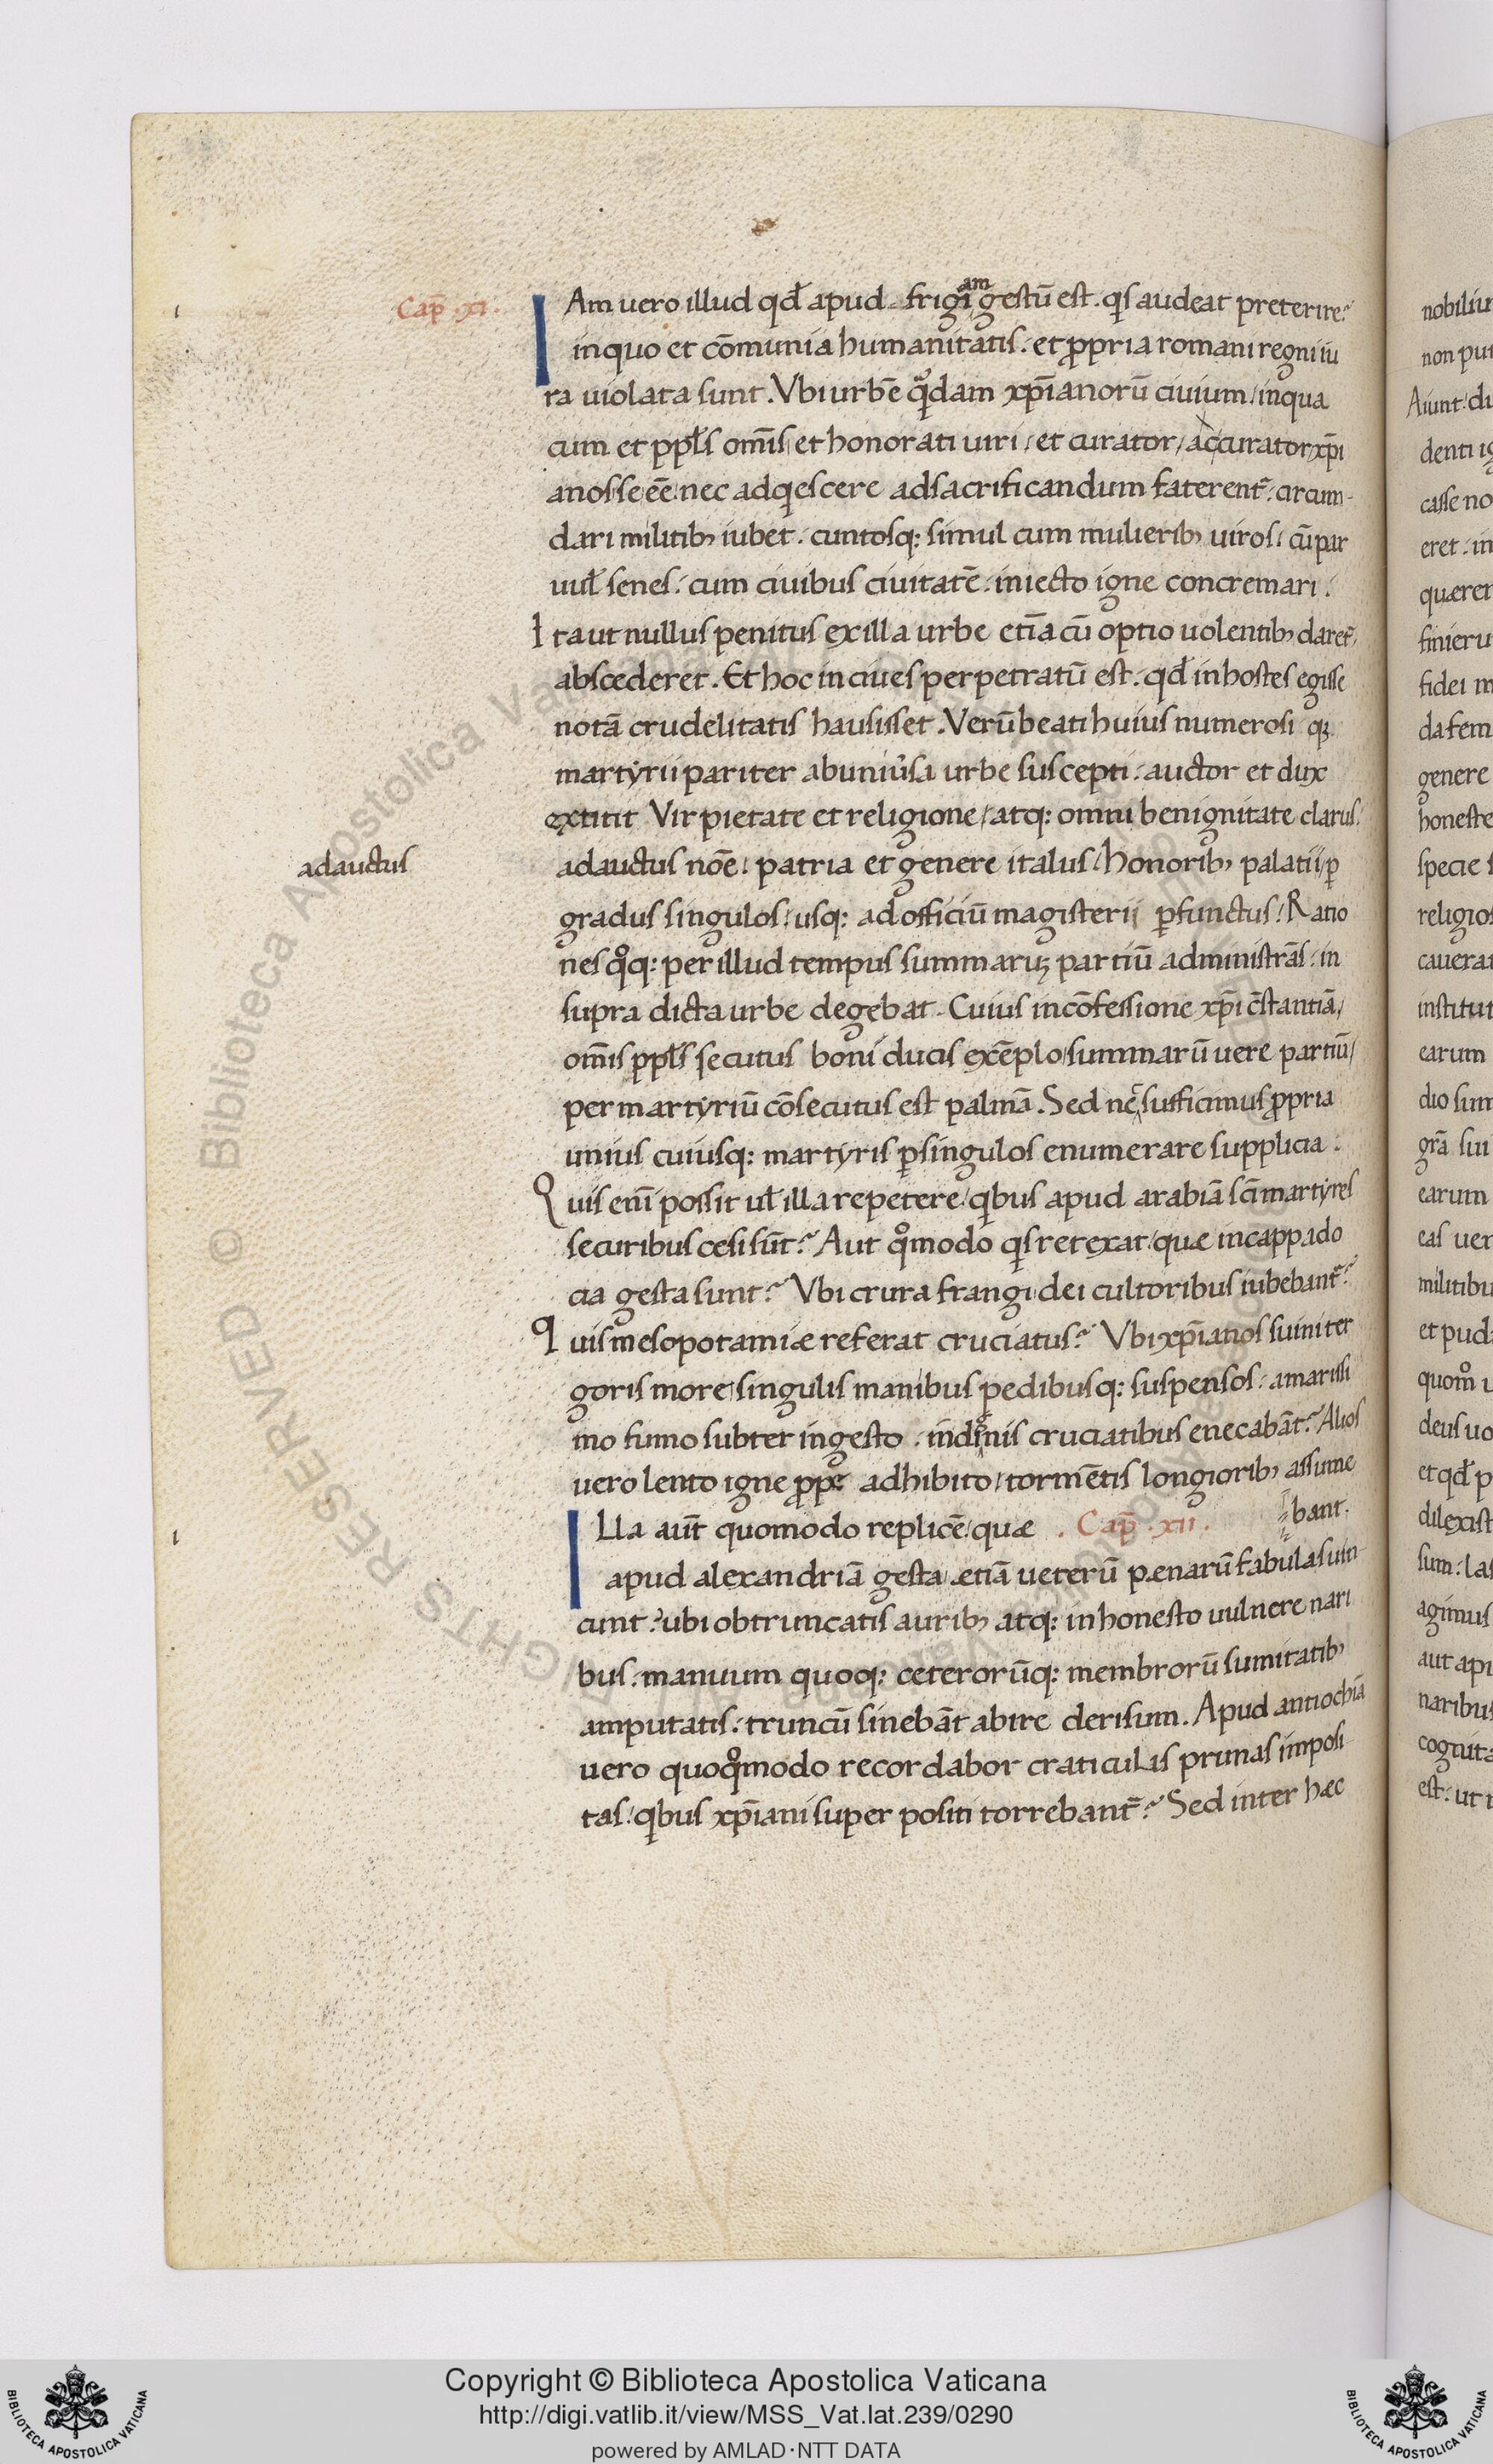 Cap̄ .xi.
IAm uero illud qd̄ apud frigi am gestū est. qs audeat preterire?
in quo et cōmunia humanitatis. et ꝓpria romani regni iu
ra uiolata sunt. Vbi urbē qͣdam xp̄ianorū ciuium, in qua
cum et ppl̄s omīs, et honorati uiri, et curator, accurator, xp̄i
anos se eē: nec adqescere ad sacrificandum faterent̄. circum-
dari militibꝫ iubet. cuntosq: simul cum mulieribꝫ uiros: cū par
uul̄ senes: cum ciuibus ciuitatē. iniecto igne concremari:
Ita ut nullus penitus ex illa urbe etiā cū optio uolentibꝫ daret̄,
abscederet. Et hoc in ciues perpetratū est: qd̄ in hostes egisse
notā crudelitatis hausisset. Verū beati huius numerosi qꝫ
martyrii pariter ab uniūsa urbe suscepti: auctor et dux
extitit Vir pietate et religione, atq: omni benignitate clarus.
adauctus
adauctus noē: patria et genere italus. honoribꝫ palatii, ꝑ
gradus singulos, usq: ad officiū magisterii ꝑfunctus. Ratio
nes qͦq: per illud tempus summaruꝫ partiū administrās: in
supra dicta urbe degebat. Cuius in cōfessione xp̄i cōstantiā,
omīs ppl̄s secutus boni ducis exēplo, summarū uere partiū,
per martyriū cōsecutus est palmā. Sed nec sufficimus ꝓpria
unius cuiusq: martyris ꝑ singulos enumerare supplicia.
Quis enī possit ul̄ illa repetere, qbus apud arabiā sc̄i martyres
securibus cesi sūt? Aut qͦmodo qs retexat, quæ in cappado
cia gesta sunt? Vbi crura frangi dei cultoribus iubebant̄?
Quis mesopotamiæ referat cruciatus? Vbi xp̄ianos suini ter
goris more, singulis manibus pedibusq: suspensos. amarissi
mo fumo subter ingesto. indignis cruciatibus enecabāt? Alios
uero lento igne ꝓpe adhibito, tormētis longioribꝫ assume
bant.
ILLa aut̄ quomodo replicē, quæ . Cap̄ .xii.
apud alexandriā gesta ætiā ueterū pænarū fabulas uin
cunt? ubi obtruncatis auribꝫ atq: inhonesto uulnere nari
bus. manuum quoq: ceterorūq: membrorū sumitatibꝫ
amputatis: truncū sinebāt abire derisum. Apud antiochiā
uero quoqͦmodo recordabor craticulis prunas imposi
tas. qbus xp̄iani super positi torrebant̄? Sed inter hæc
nobiliu
non put
Aiunt: di
denti ig
casse no
eret. in
quærer
finieru
fidei m
da fem
genere
honeste
specie s
religios
cauerat
institut
earum
dio sum
grā sui
earum
eas uer
militibu
et pudi
quom̊ u
deus uo
et qd̄ p
dilexist
sum: las
agimus
aut api
naribus
cognita
est: ut
Copyright © Biblioteca Apostolica Vaticana
http://digi.vatlib.it/view/MSS_Vat.lat.239/0290
powered by AMLAD·NTT DATA
BIBLIOTECA APOSTOLICA VATICANA
BIBLIOTECA APOSTOLICA VATICANA